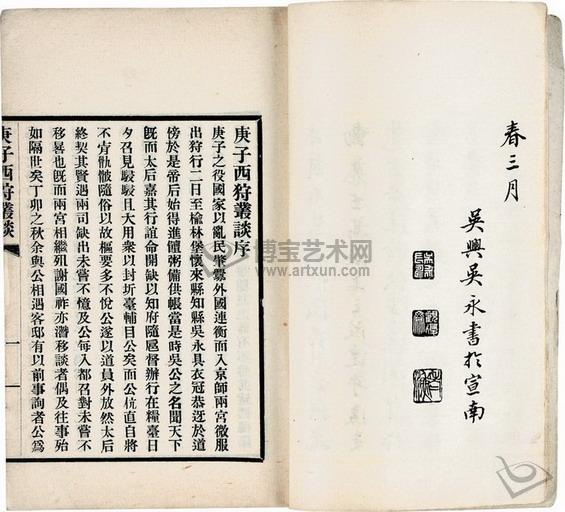 春三月
吳興吳永書於宣南
庚子西狩叢談序
庚子之役國家以亂民肇釁外國連衡而入京師兩宮微服
出狩行二日至榆林堡懷來縣知縣吳永具衣冠恭迓於道
傍於是帝后始得進饘粥備供帳當是時吳公之名聞天下
既而太后嘉其行誼命開缺以知府隨扈督辦行在糧臺日
夕召見駸駸且大用衆以封圻臺輔目公矣而公杭直自將
不肯骩骳隨俗以故樞要多不悅公遂以道員外放然太后
終契其賢遇兩司缺出未嘗不憶及公每入都召對未嘗不
移晷也既而兩宮相繼殂謝國祚亦潛移談者偶及往事殆
如隔世矣丁卯之秋余與公相遇客邸有以前事詢者公爲
庚子西狩叢談
一
博宝艺术网
www.artxun.com